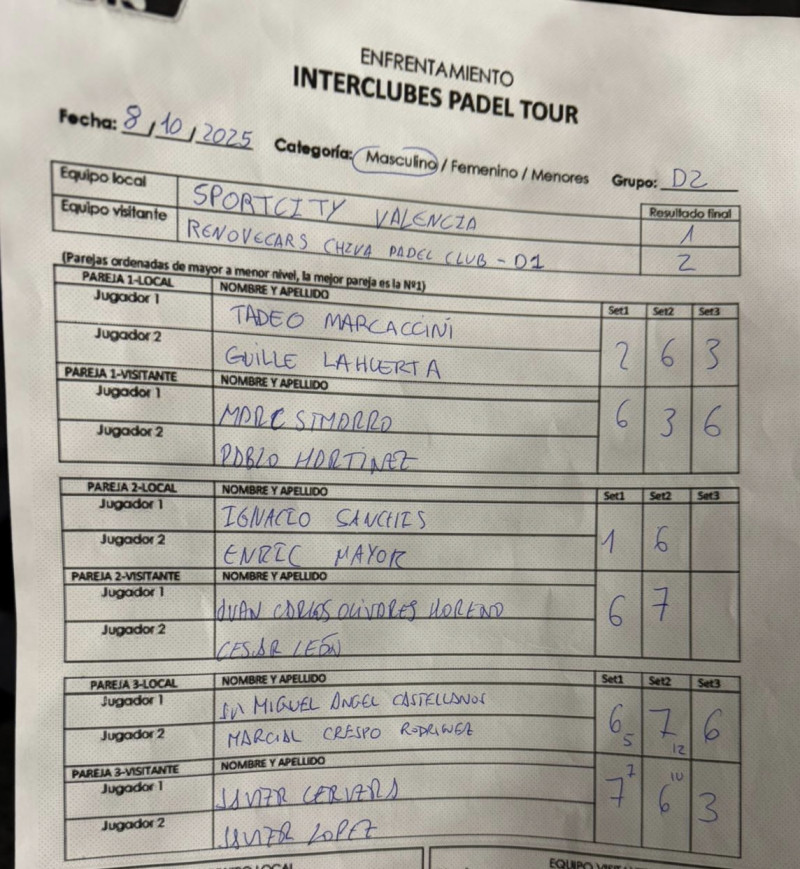 ENFRENTAMIENTO
INTERCLUBES PADEL TOUR
Fecha: 8/10/2025 Categoría: Masculino / Femenino / Menores Grupo: D2
Equipo local SPORTCITY VALENCIA Resultado final 1
Equipo visitante RENOVECARS CHIVA PADEL CLUB - D1 2
(Parejas ordenadas de mayor a menor nivel, la mejor pareja es la Nº1)
PAREJA 1-LOCAL NOMBRE Y APELLIDO Set1 Set2 Set3
Jugador 1 TADEO MARCACCINI
Jugador 2 GUILLE LAHUERTA 2 6 3
PAREJA 1-VISITANTE NOMBRE Y APELLIDO
Jugador 1 MARC SIMARRO 6 3 6
Jugador 2 PABLO MARTINEZ
PAREJA 2-LOCAL NOMBRE Y APELLIDO Set1 Set2 Set3
Jugador 1 IGNACIO SANCHIS
Jugador 2 ENRIC MAYOR 1 6
PAREJA 2-VISITANTE NOMBRE Y APELLIDO
Jugador 1 JUAN CARLOS OLIVARES MORENO 6 7
Jugador 2 CESAR LEÓN
PAREJA 3-LOCAL NOMBRE Y APELLIDO Set1 Set2 Set3
Jugador 1 MIGUEL ANGEL CASTELLANOS
Jugador 2 MARCIAL CRESPO RODRIGUEZ 6 5 7 12 6
PAREJA 3-VISITANTE NOMBRE Y APELLIDO
Jugador 1 JAVIER CERVERA 7 7 6 10 3
Jugador 2 JAVIER LOPEZ